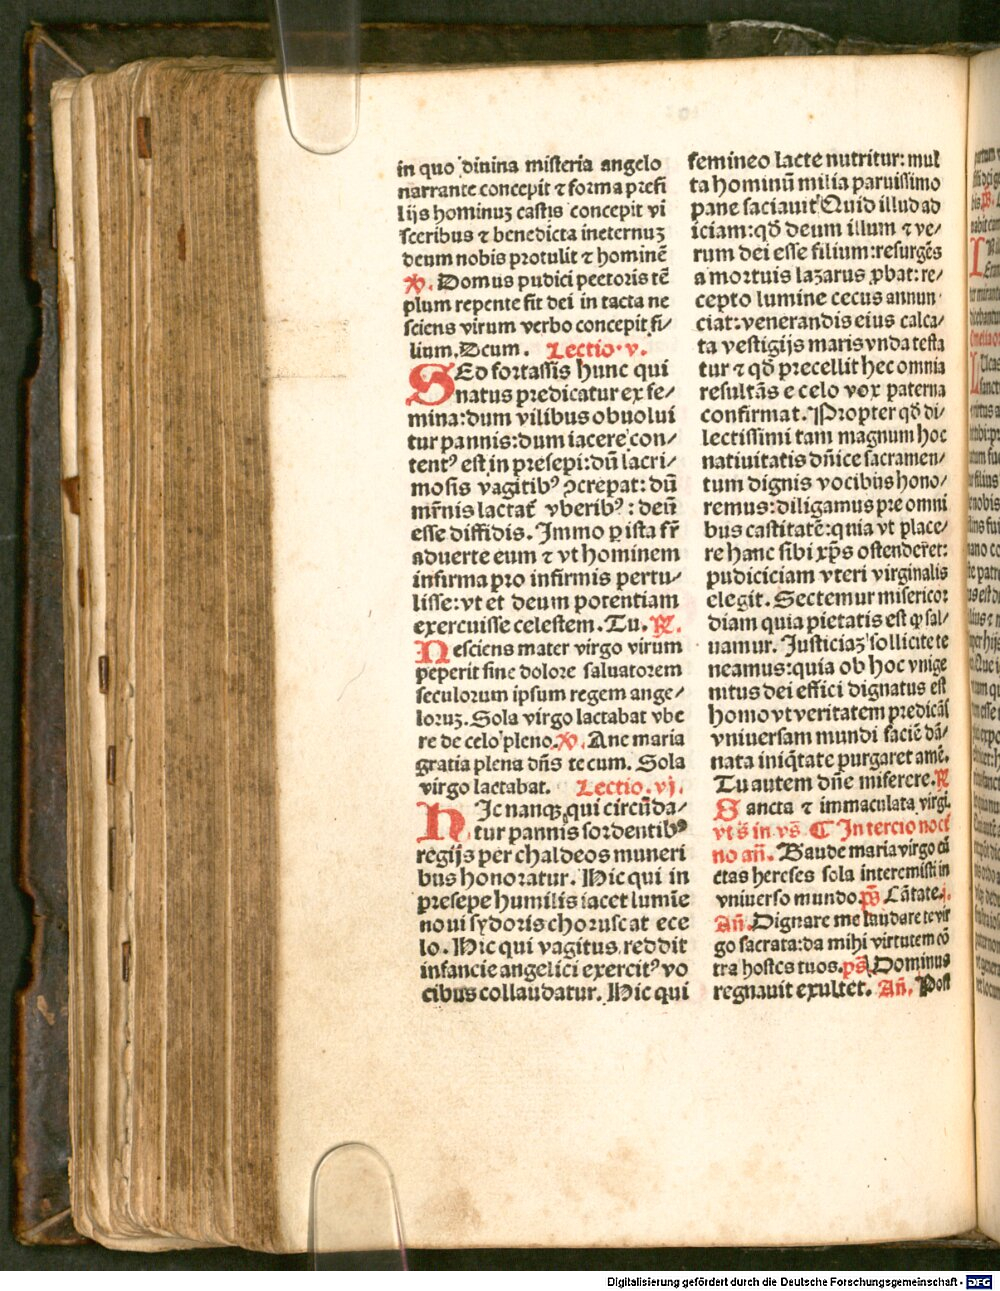 in quo diuina misteria angelo
narrante concepit ⁊ forma prefi
lijs hominuʒ castis concepit vi
sceribus ⁊ benedicta ineternuʒ
deum nobis protulit ⁊ hominē
℣. Domus pudici pectoris tē
plum repente fit dei in tacta ne
sciens virum verbo concepit fi⸗
lium. Dcum. Lectio·v.
SEd fortassis hunc qui
natus predicatur ex fe⸗
mina:dum vilibus obuolui
tur pannis:dum iacere con⸗
tentꝰ est in presepi:dū lacri⸗
mosis vagitibꝰ ɔcrepat: dū
mr̄nis lactat᷑ vberibꝰ : deū
esse diffidis. Immo ꝑ ista fr̄
aduerte eum ⁊ vt hominem
infirma pro infirmis pertu⸗
lisse:vt et deum potentiam
exercuisse celestem. Tu. ℟.
Nesciens mater virgo virum
peperit sine dolore saluatorem
seculorum ipsum regem ange⸗
loruʒ. Sola virgo lactabat vbe
re de celo pleno. ℣. Aue maria
gratia plena dn̄s tecum. Sola
virgo lactabat. Lectio.vj.
HIc nanqʒ qui circūda⸗
tur pannis sordentibꝰ
regijs per chaldeos muneri
bus honoratur. Hic qui in
presepe humilis iacet lumīe
noui sydoris choruscat ece
lo. Hic qui vagitus reddit
infancie angelici exercitꝰ vo
cibus collaudatur. Hic qui
femineo lacte nutritur: mul
ta hominū milia paruissimo
pane saciauit Quid illud ad
iciam:qd̄ deum illum ⁊ ve⸗
rum dei esse filium:resurgēs
a mortuis laʒarus ꝓbat:re⸗
cepto lumine cecus annun
ciat:venerandis eius calca⸗
ta vestigijs maris vnda testa
tur ⁊ qd̄ precellit hec omnia
resultās e celo vox paterna
confirmat. Propter qd̄ di⸗
lectissimi tam magnum hoc
natiuitatis dn̄ice sacramen⸗
tum dignis vocibus hono⸗
remus:diligamus pre omni
bus castitatē:quia vt place⸗
re hanc sibi xp̄s ostenderet:
pudiciciam vteri virginalis
elegit. Sectemur misericor
diam quia pietatis est ꝙ sal⸗
uamur. Justiciaʒ sollicite te
neamus:quia ob hoc vnige
nitus dei effici dignatus est
homo vt veritatem predicās
vniuersam mundi faciē dā⸗
nata iniq̇tate purgaret amē.
Tu autem dn̄e miserere. ℟
Sancta ⁊ immaculata virgi.
vt s̄ in vs̄. ¶ In tercio noct
no an̄. Gaude maria virgo cū
ctas hereses sola interemisti in
vniuerso mundo. ps̄ Cātate.j.
An̄. Dignare me laudare te vir
go sacrata:da mihi virtutem cō
tra hostes tuos. ps̄ Dominus
regnauit exultet. An̄. Post
Digitalisierung gefördert durch die Deutsche Forschungsgemeinschaft - DFG